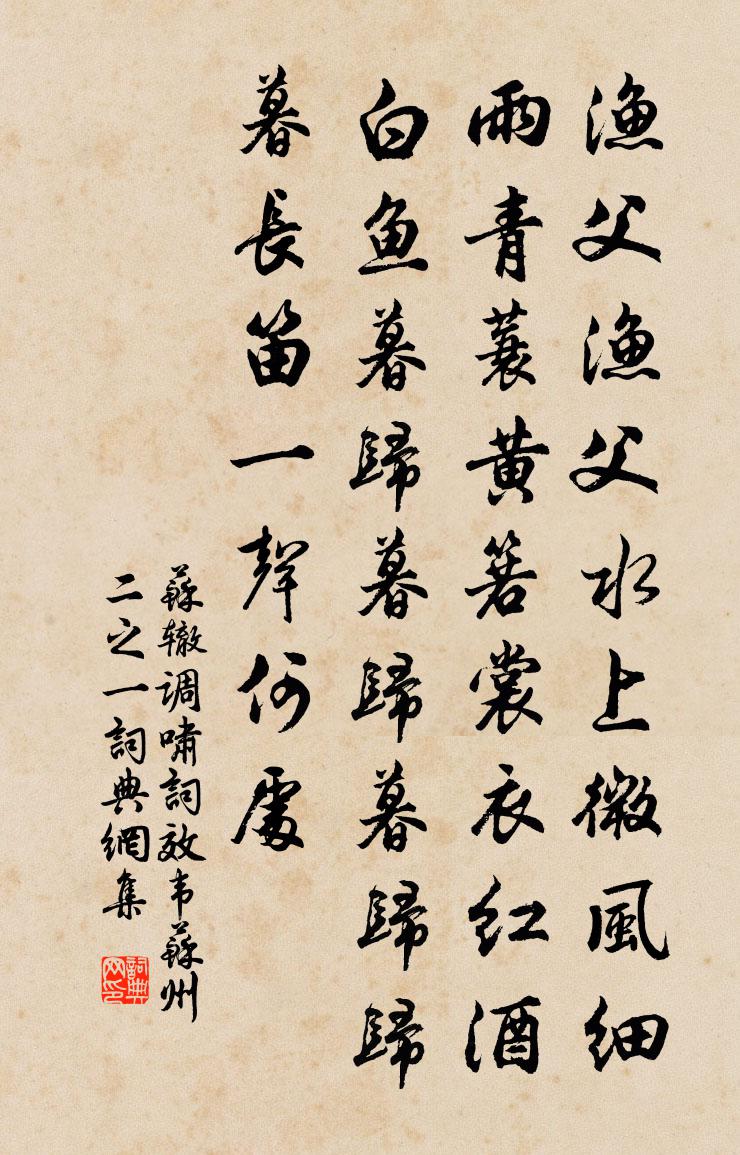 渔父渔父水上微風细
雨青蓑黄箬裳衣红酒
白鱼暮歸暮歸暮歸歸
暮長笛一聲何處
蘇辙調嘯詞效韦蘇州
二之一詞典網集
詞典网印